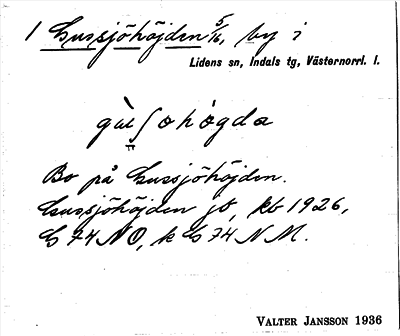 1 Gussjöhöjden 5/16, by i
Lidens sn, Indals tg, Västernorrl. l.
Bo på Gussjöhöjden.
Gussjöhöjden jb, kb 1926,
G 74 NO, k G 74 NM.
VALTER JANSSON 1936